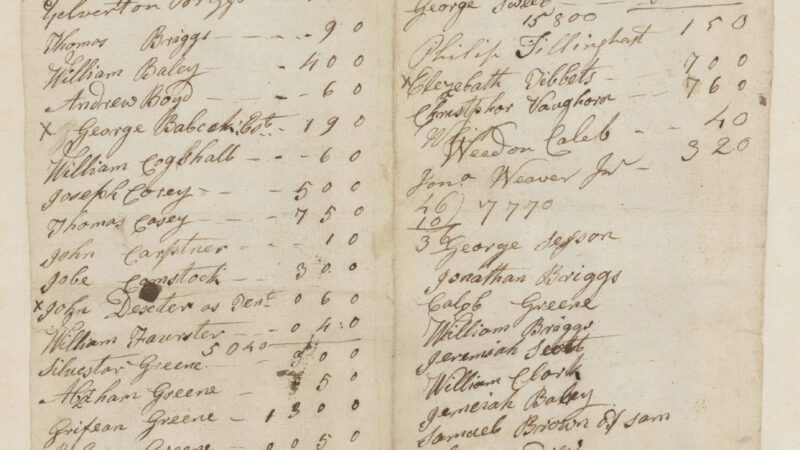 Gelverton Briggs
Thomas Briggs - - - - 9 0
William Baley - 4 0 0
Andrew Boyd - - 6 0
x George Babcock Est. - 1 9 0
William Cogshall - - - 6 0
Joseph Corey - - - 5 0 0
Thomas Casey - - - - 7 5 0
John Carpetner - - - 1 0
Jobe Comstock - - 3 0 0
x John Dexeter as Tent. 0 6 0
William Faurster - - 0 4 0
5040
Silvestar Greene - 3 0 0
Abraham Greene - 5 0
Grifean Greene - 1 3 0 0
Greene 0 5 0
George Sweet
15800
Philip Tillinghast 1 5 0
x Elezebath Tibbets - - 7 0 0
Christphor Vaughorn - - 7 6 0
Weedon Caleb - - 4 0
Jona. Weaver Jur - 3 2 0
46) 7770
10
36
George Sefson
Jonathan Briggs
Calob Greene
William Briggs
Jeremiah Scott
William Clark
Jemeiah Baley
Samuel Brown of Sam